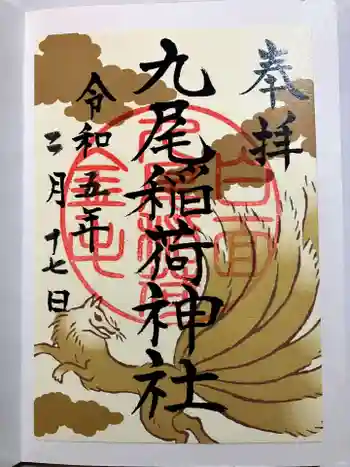 奉拝
九尾稲荷神社
令和五年
二月十七日